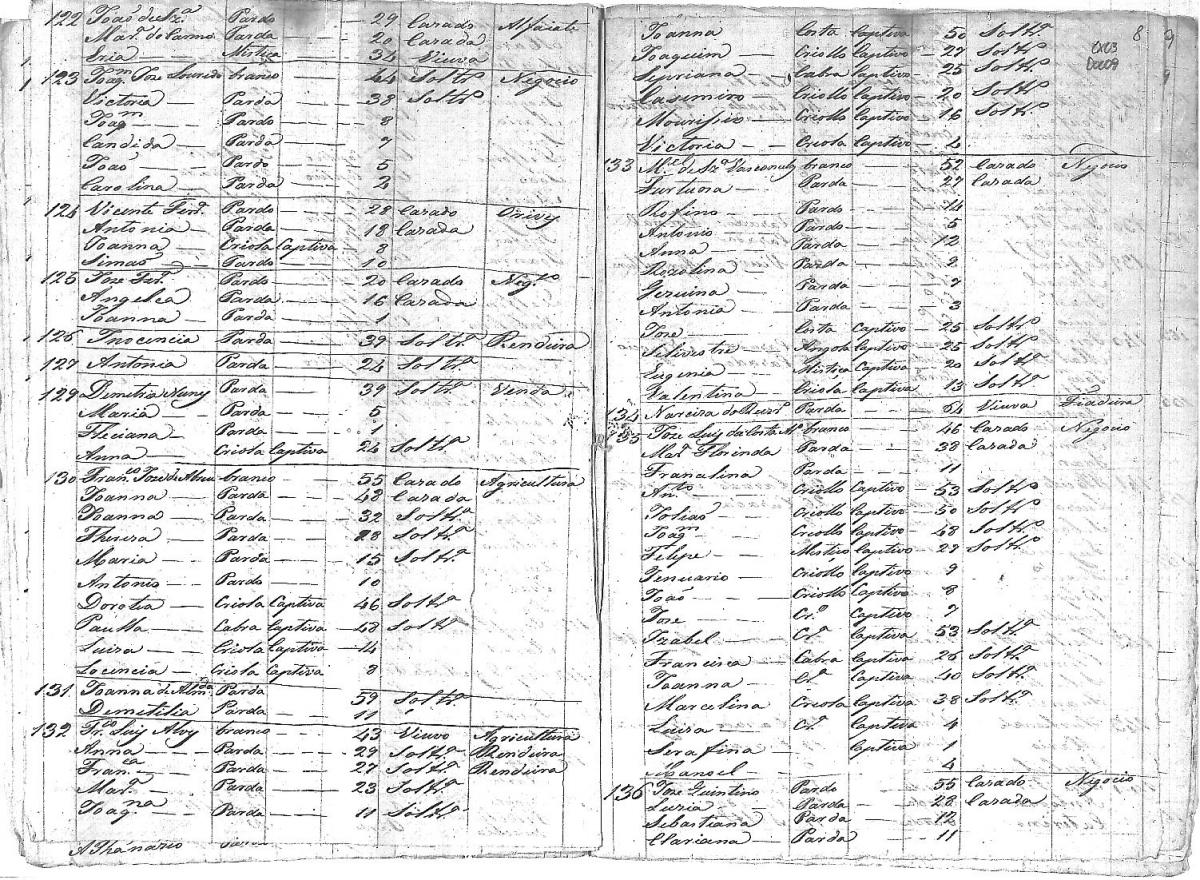 122 João de Sz.ª Pardo 29 Cazado Alfaiate
Mar.ª do Carmo Parda 20 Cazada
Iria Mistiça 34 Viuva
123 Joaq.m Joze Lourido branco 44 Soltr.º Negocio
Victoria Parda 38 Soltr.ª
Joaq.m Pardo 8
Candida Parda 7
João Pardo 5
Carolina Parda 2
124 Vicente Ferr.ª Pardo 28 Cazado Orives
Antonia Parda 18 Cazada
Joanna Criola Captiva 8
Simaõ Pardo 10
125 Joze Ferr.ª Pardo 20 Cazado Neg.co
Angelca Parda 16 Cazada
Joanna Parda 1
126 Inocencia Parda 39 Soltr.ª Rendeira
127 Antonia Parda 24 Soltr.ª
129 Demetria Nunes Parda 39 Soltr.ª Venda
Maria Parda 5
Feleciana Parda 1
Anna Criola Captiva 24 Soltr.ª
130 Fran.co Joze de Abreu branco 55 Cazado Agricultura
Joanna Parda 48 Cazada
Joanna Parda 32 Soltr.ª
Thereza Parda 28 Soltr.ª
Maria Parda 15 Soltr.ª
Antonio Pardo 10
Dorotea Criola Captiva 46 Soltr.ª
Paulla Cabra Captiva 48 Soltr.ª
Luiza Criola Captiva 14
Locencia Criola Captiva 8
131 Joanna de Alm.da Parda 59 Soltr.ª
Demetilia Parda 11
132 Fr.co Luis Alvz branco 43 Viuvo Agricultura
Anna Parda 29 Soltr.ª Rendeira
Fran.ca Parda 27 Soltr.ª Rendeira
Mar.ª Parda 23 Soltr.ª
Joaq.na Parda 11 Soltr.ª
Athanazio Pardo
8 9
Joanna Costa Captiva 50 Soltr.ª
Joaquim Criollo Captivo 27 Soltr.º
Sepriana Cabra Captiva 25 Soltr.ª
Casimiro Criollo Captivo 20 Soltr.º
Mouricio Criollo Captivo 16 Soltr.º
Victoria Criola Captiva 2
133 M.el de Sz.ª Vasconcelz branco 52 Cazado Negocio
Furtuoza Parda 27 Cazada
Rofino Pardo 14
Antonio Pardo 5
Anna Parda 12
Rozalina Parda 9
Geruina Parda 7
Antonia Parda 3
Joze Costa Captivo 25 Soltr.º
Selivestre Angola Captivo 25 Soltr.º
Eugenia Mistica Captiva 20 Soltr.ª
Valentina Criola Captiva 13 Soltr.ª
134 Narciza do Rozr.º Parda 64 Viuva Fiadeira
135 Joze Luiz da Costa M.º branco 46 Cazado Negocio
Mar.ª Florinda Parda 38 Cazada
Francelina Parda 11
An.to Criollo Captivo 53 Soltr.º
Tobias Criollo Captivo 50 Soltr.º
Joaq.m Criollo Captivo 48 Soltr.º
Felipe Mistico Captivo 29 Soltr.º
Jenuario Criollo Captivo 9
João Criollo Captivo 8
Joze Cr.º Captivo 7
Izabel Cr.ª Captiva 53 Soltr.ª
Francisca Cabra Captiva 26 Soltr.ª
Joanna Cr.ª Captiva 40 Soltr.ª
Marcelina Criola Captiva 38 Soltr.ª
Luiza Cr.ª Captiva 4
Serafina Captiva 1
Manoel 4
136 Joze Quintino Pardo 55 Cazado Negocio
Luzia Parda 28 Cazada
Sebastiana Parda 12
Clariana Parda 11